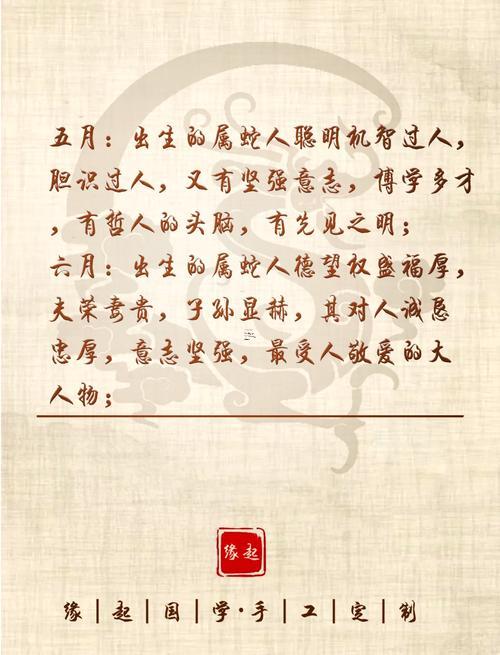 五月：出生的属蛇人聪明机智过人，
胆识过人，又有坚强意志，博学多才
，有哲人的头脑，有先见之明；
六月：出生的属蛇人德望权盛福厚，
夫荣妻贵，子孙显赫，其对人诚恳
忠厚，意志坚强，最受人敬爱的大
人物；
缘起
缘|起|国|学·手|工|定|制